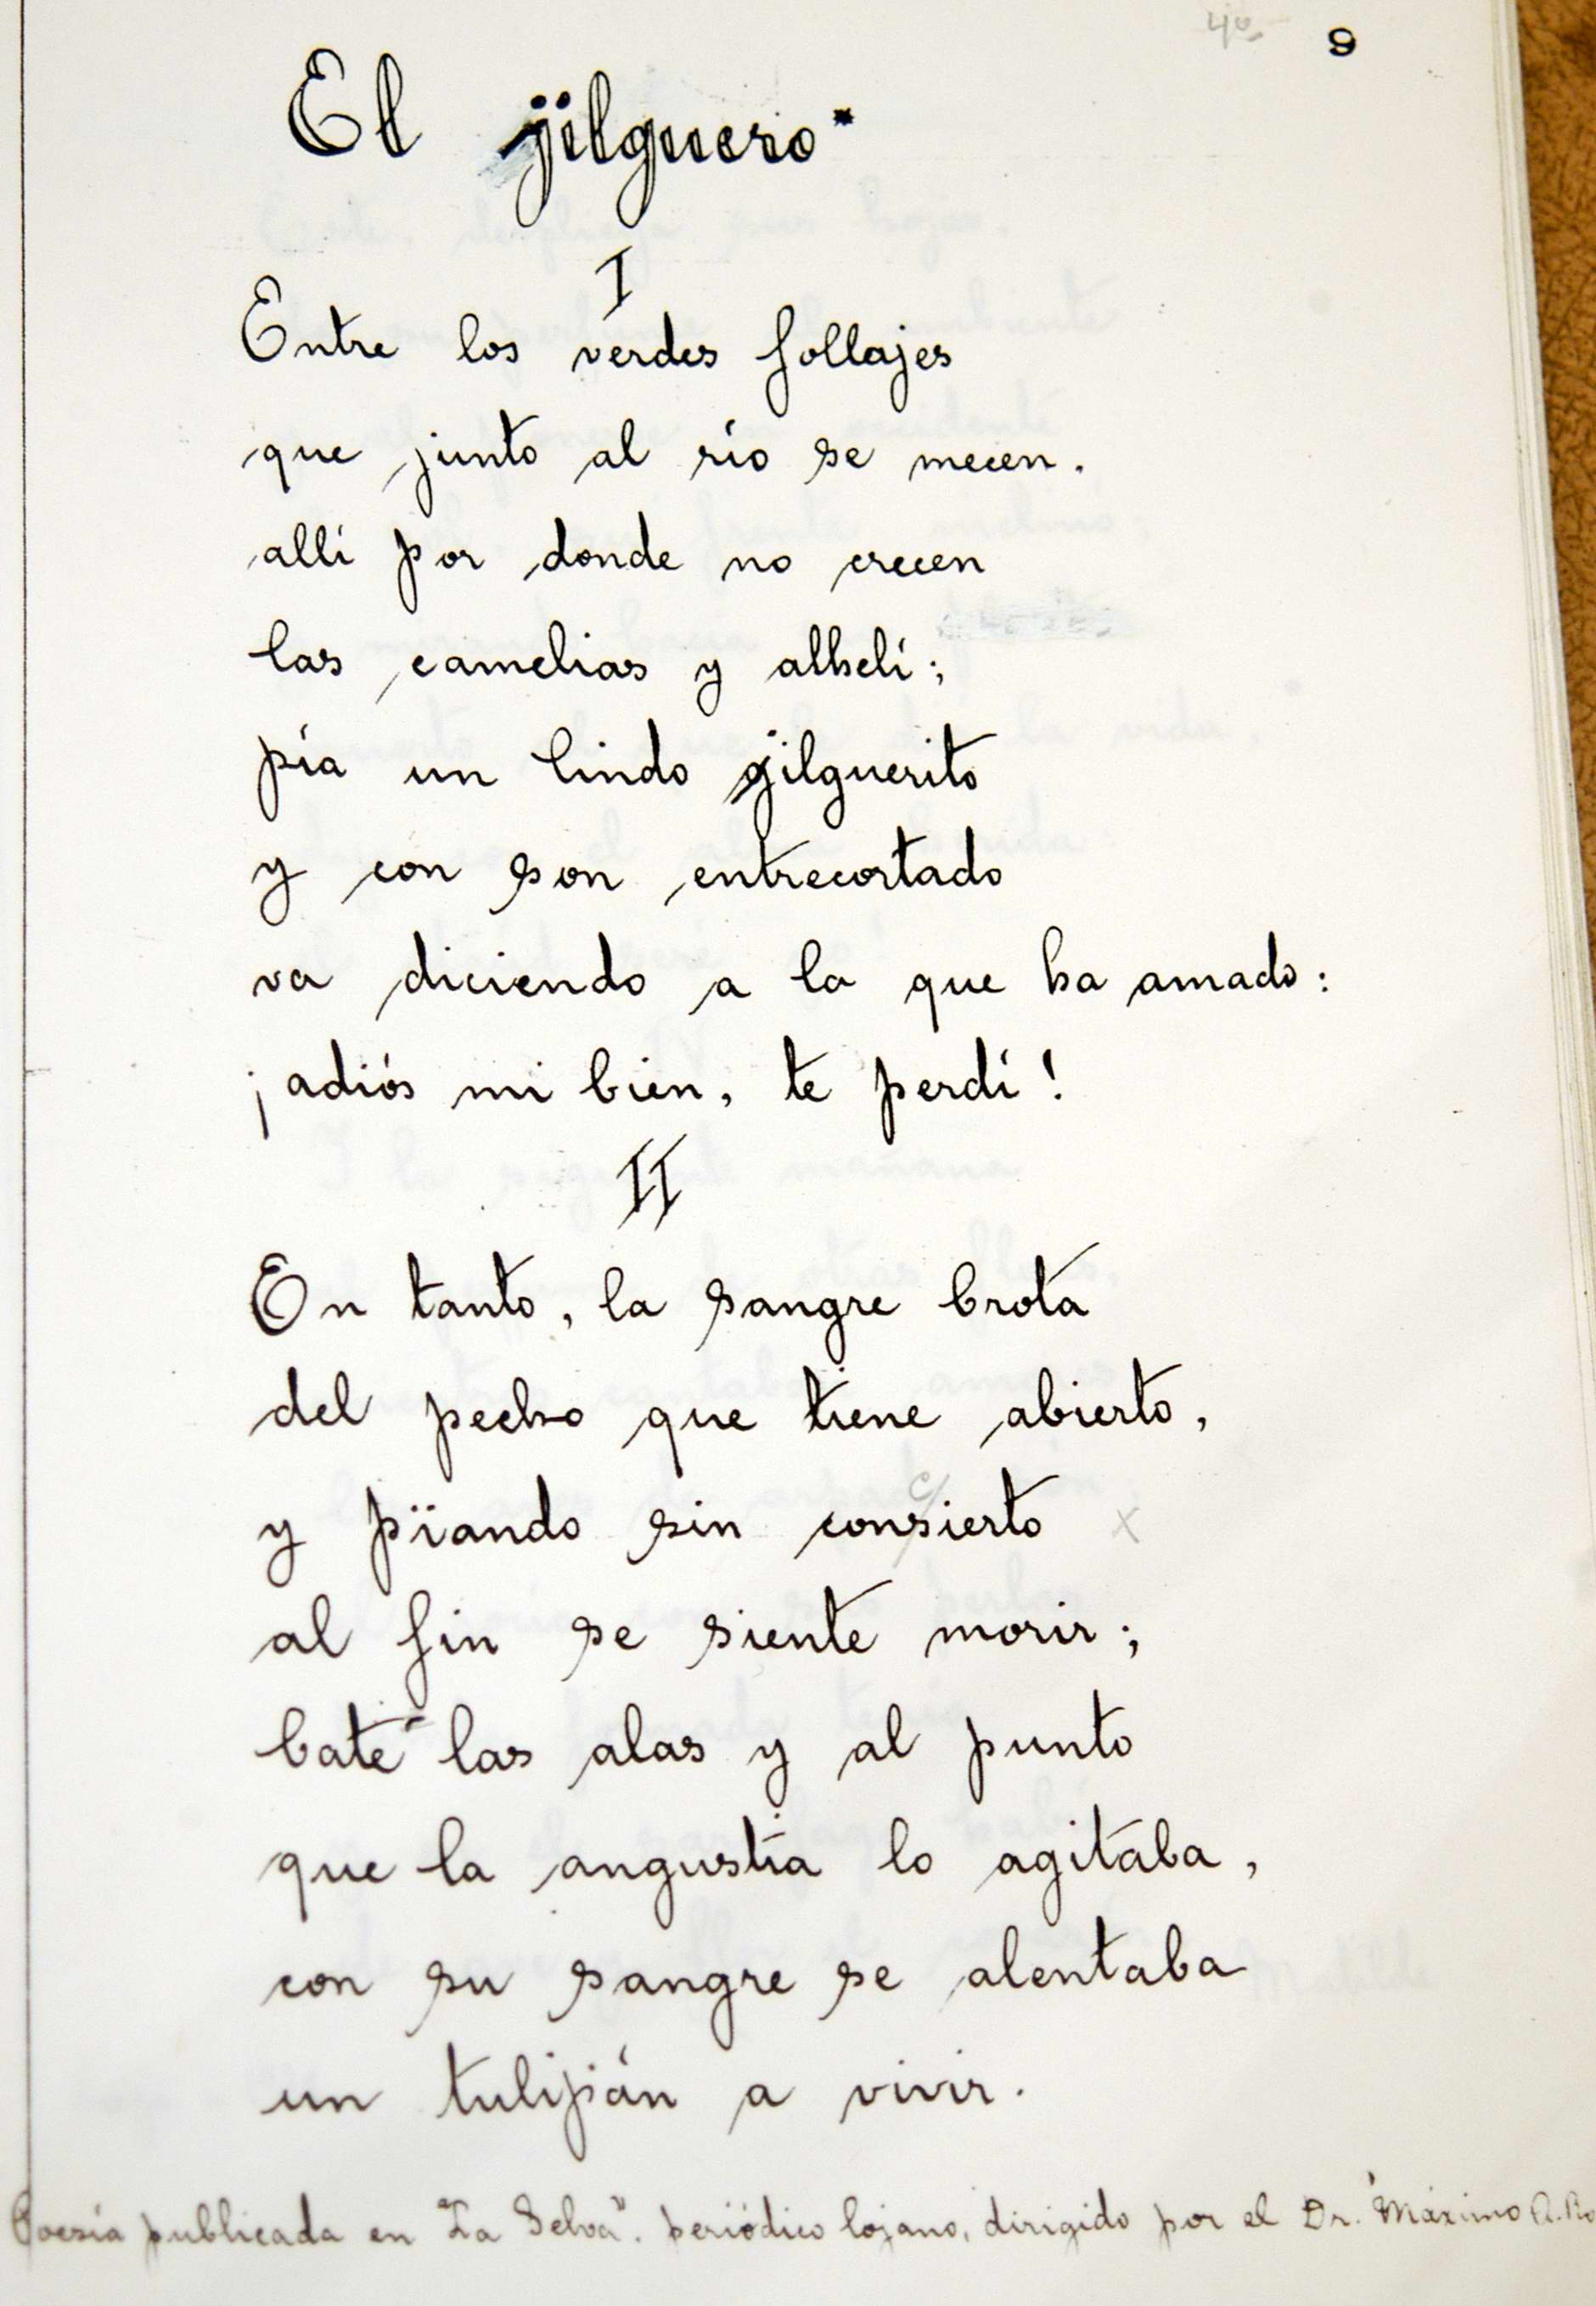 40
9
El jilguero*
I
Entre los verdes follajes
que junto al río se mecen,
allí por donde no crecen
las camelias y alhelí;
pía un lindo jilguerito
y con son entrecortado
va diciendo a la que ha amado:
¡adiós mi bien, te perdí!
II
En tanto, la sangre brota
del pecho que tiene abierto,
c
y pïando sin consierto x
al fin se siente morir;
bate las alas y al punto
que la angustia lo agitaba,
con su sangre se alentaba
un tulipán a vivir.
Poesía publicada en "La Selva", periódico lojano, dirigido por el Dr. Máximo A.